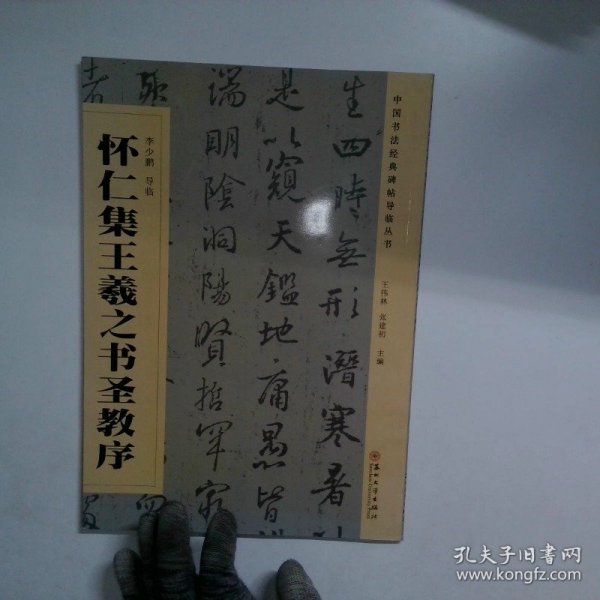 怀仁集王羲之书圣教序
李少鹏 导临
中国书法经典碑帖导临丛书
王伟林 张建初 主编
生四時無形潛寒暑
是以窺天鑑地庸愚皆
端明陰洞陽賢哲罕窮
苏州大学出版社
孔夫子旧书网
www.kongfz.com